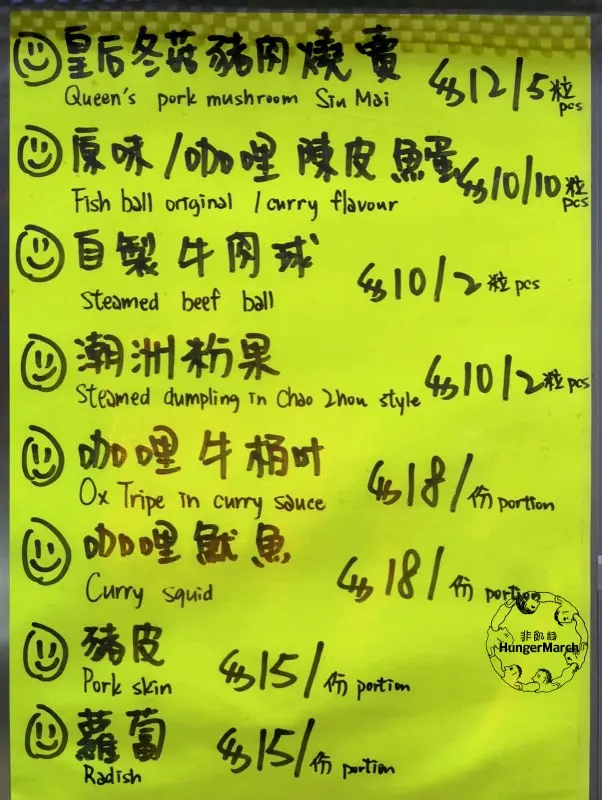 皇后冬菇豬肉燒賣 $12/5粒
Queen's pork mushroom Siu Mai pcs
原味/咖哩 陳皮魚蛋 $10/10粒
Fish ball original / curry flavour pcs
自製牛肉球 $10/2粒 pcs
Steamed beef ball
潮洲粉果 $10/2粒 pcs
Steamed dumpling in Chao Zhou style
咖哩牛栢叶 $18/份 portion
Ox Tripe in curry sauce
咖哩魷魚 $18/份 portion
Curry squid
非飢謹
HungerMarch
豬皮 $15/份 portion
Pork skin
蘿蔔 $15/份 portion
Radish